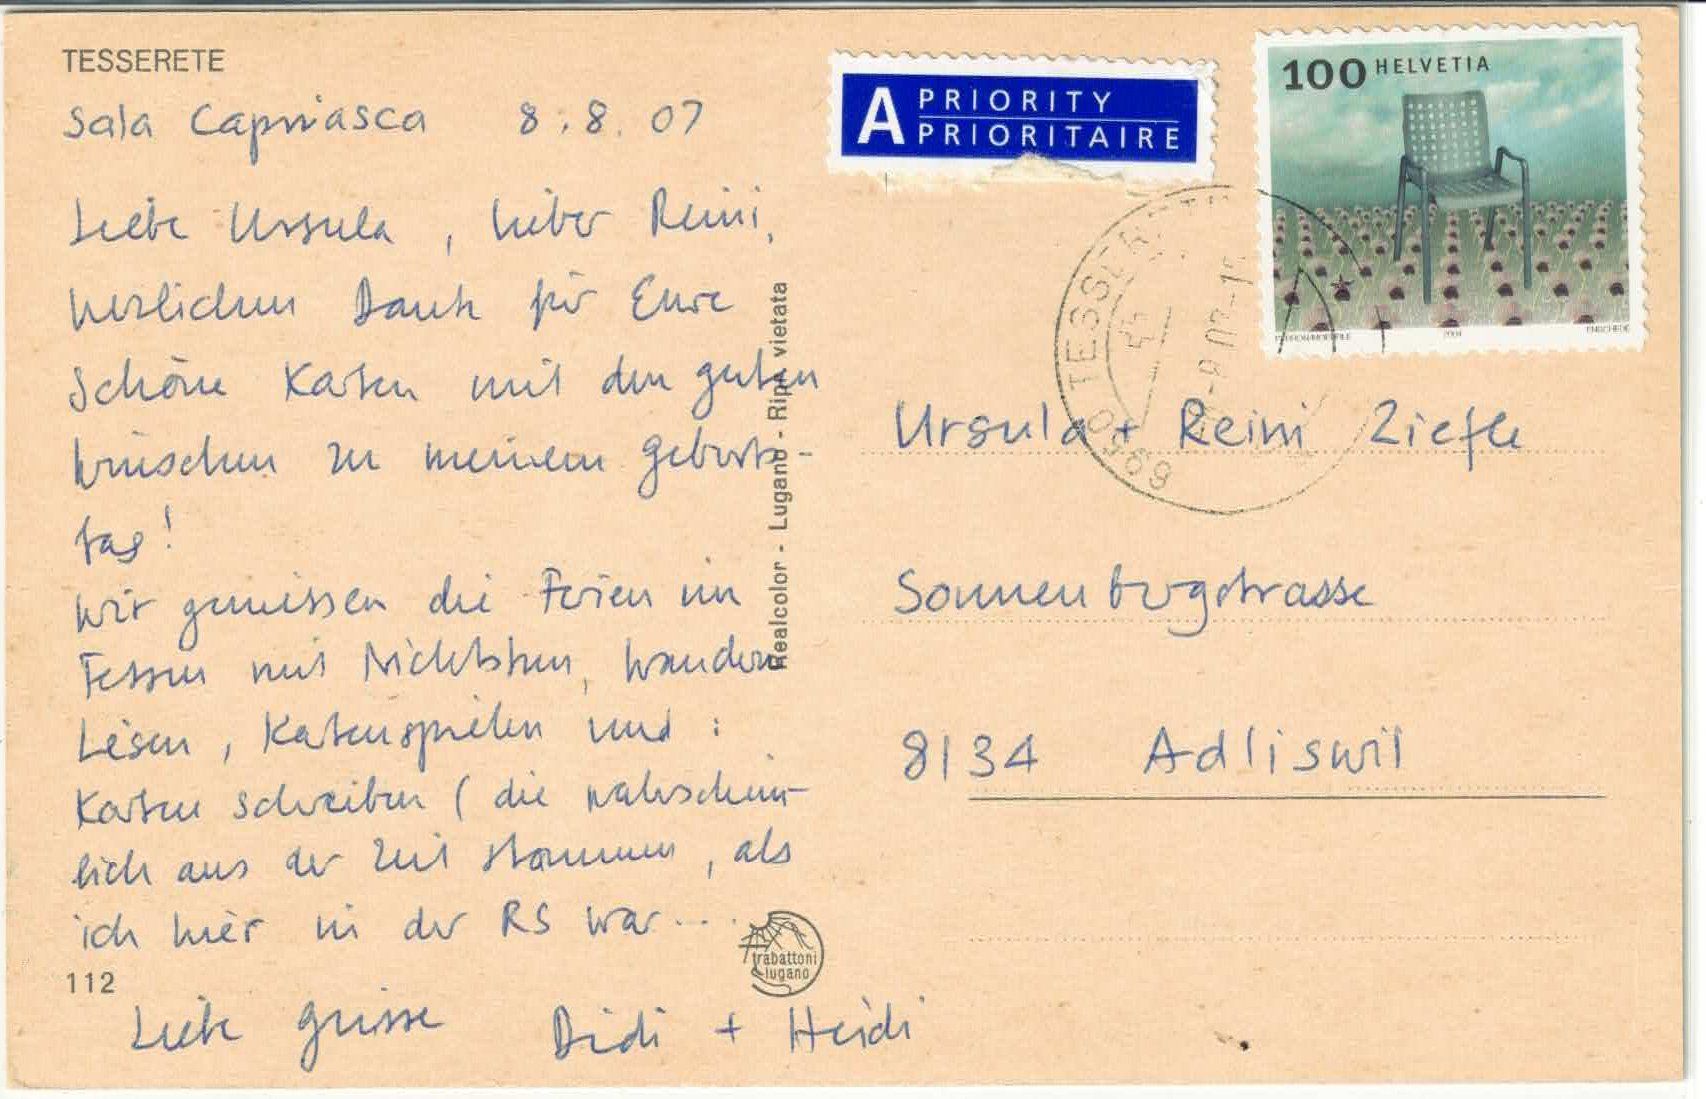 TESSERETE
Sala Capriasca 8.8.07
Liebe Ursula, lieber Reini,
herzlichen Dank für Eure
schöne Karten mit den guten
Wünschen zu meinem Geburts-
tag!
Wir geniessen die Ferien im
Tessin mit Nichtstun, Wandern
Lesen, Kartenspielen und:
Karten schreiben (die wahrschein-
lich aus der Zeit stammen, als
ich hier in der RS war...
112
Liebe Grüsse Didi + Heidi
Realcolor - Lugano - Rip. vietata
trabattoni
lugano
A PRIORITY
PRIORITAIRE
100 HELVETIA
2004
ENSCHEDE
6950 TESSERETE
Ursula + Reini Ziefle
Sonnenbergstrasse
8134 Adliswil